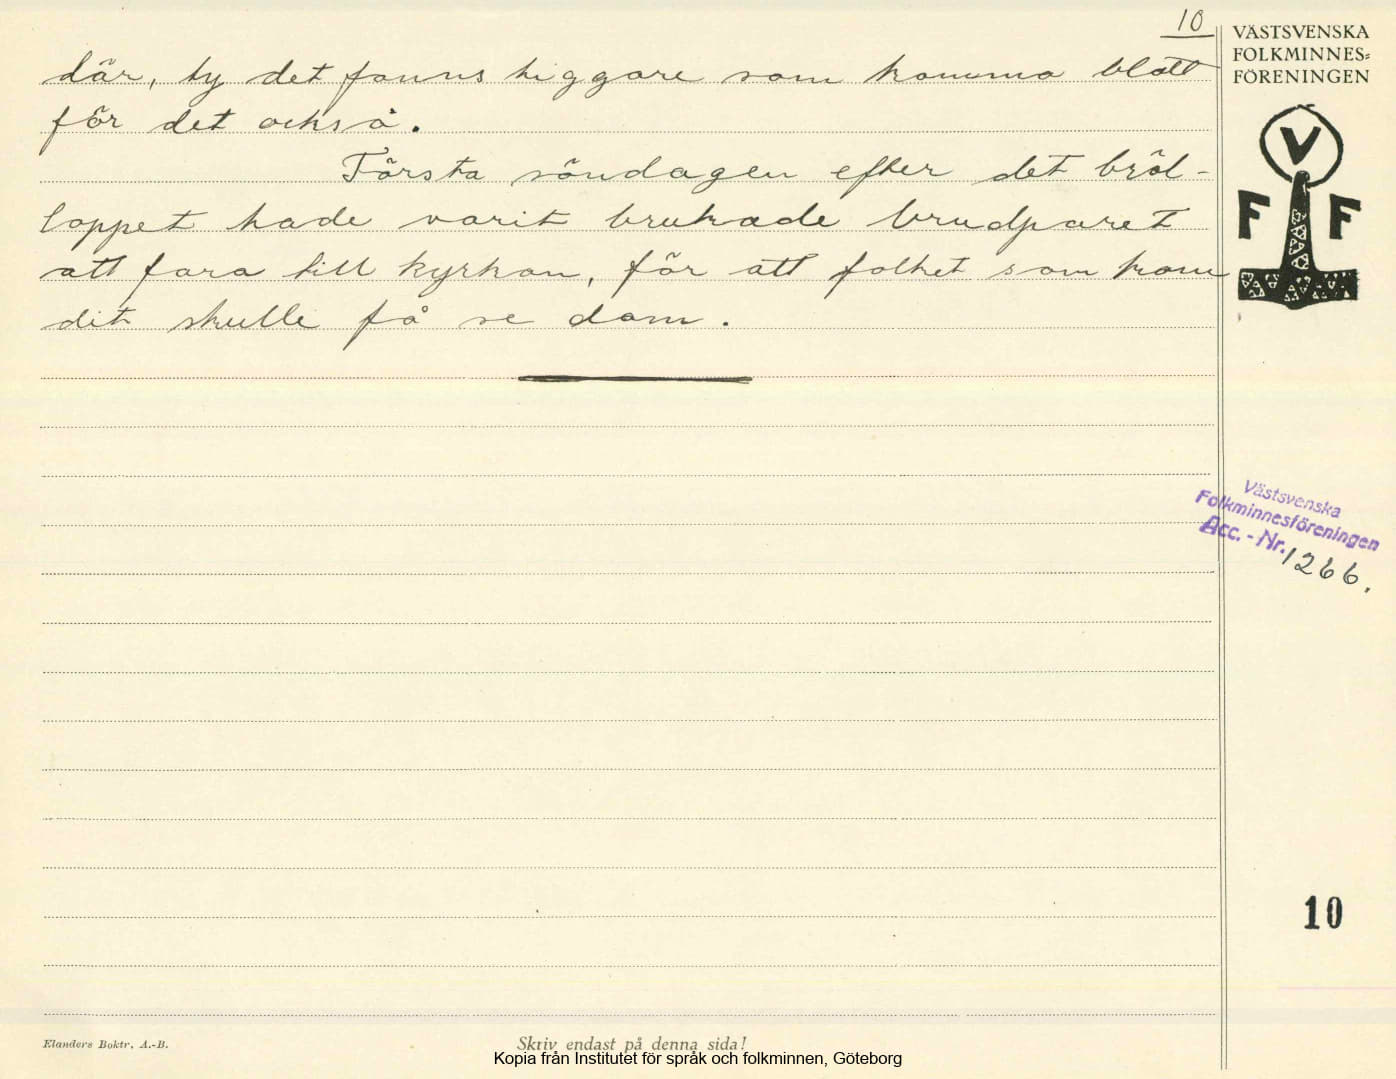 10
där, ty det fanns tiggare som komma blott
för det också.
Första söndagen efter det bröl-
loppet hade varit brukade brudparet
att fara till kyrkan, för att folket som kom
dit skulle få se dom.
VÄSTSVENSKA
FOLKMINNES=
FÖRENINGEN
V
F F
Västsvenska
Folkminnesföreningen
Acc. - Nr. 1266.
10
Elanders Boktr. A.-B.
Skriv endast på denna sida!
Kopia från Institutet för språk och folkminnen, Göteborg